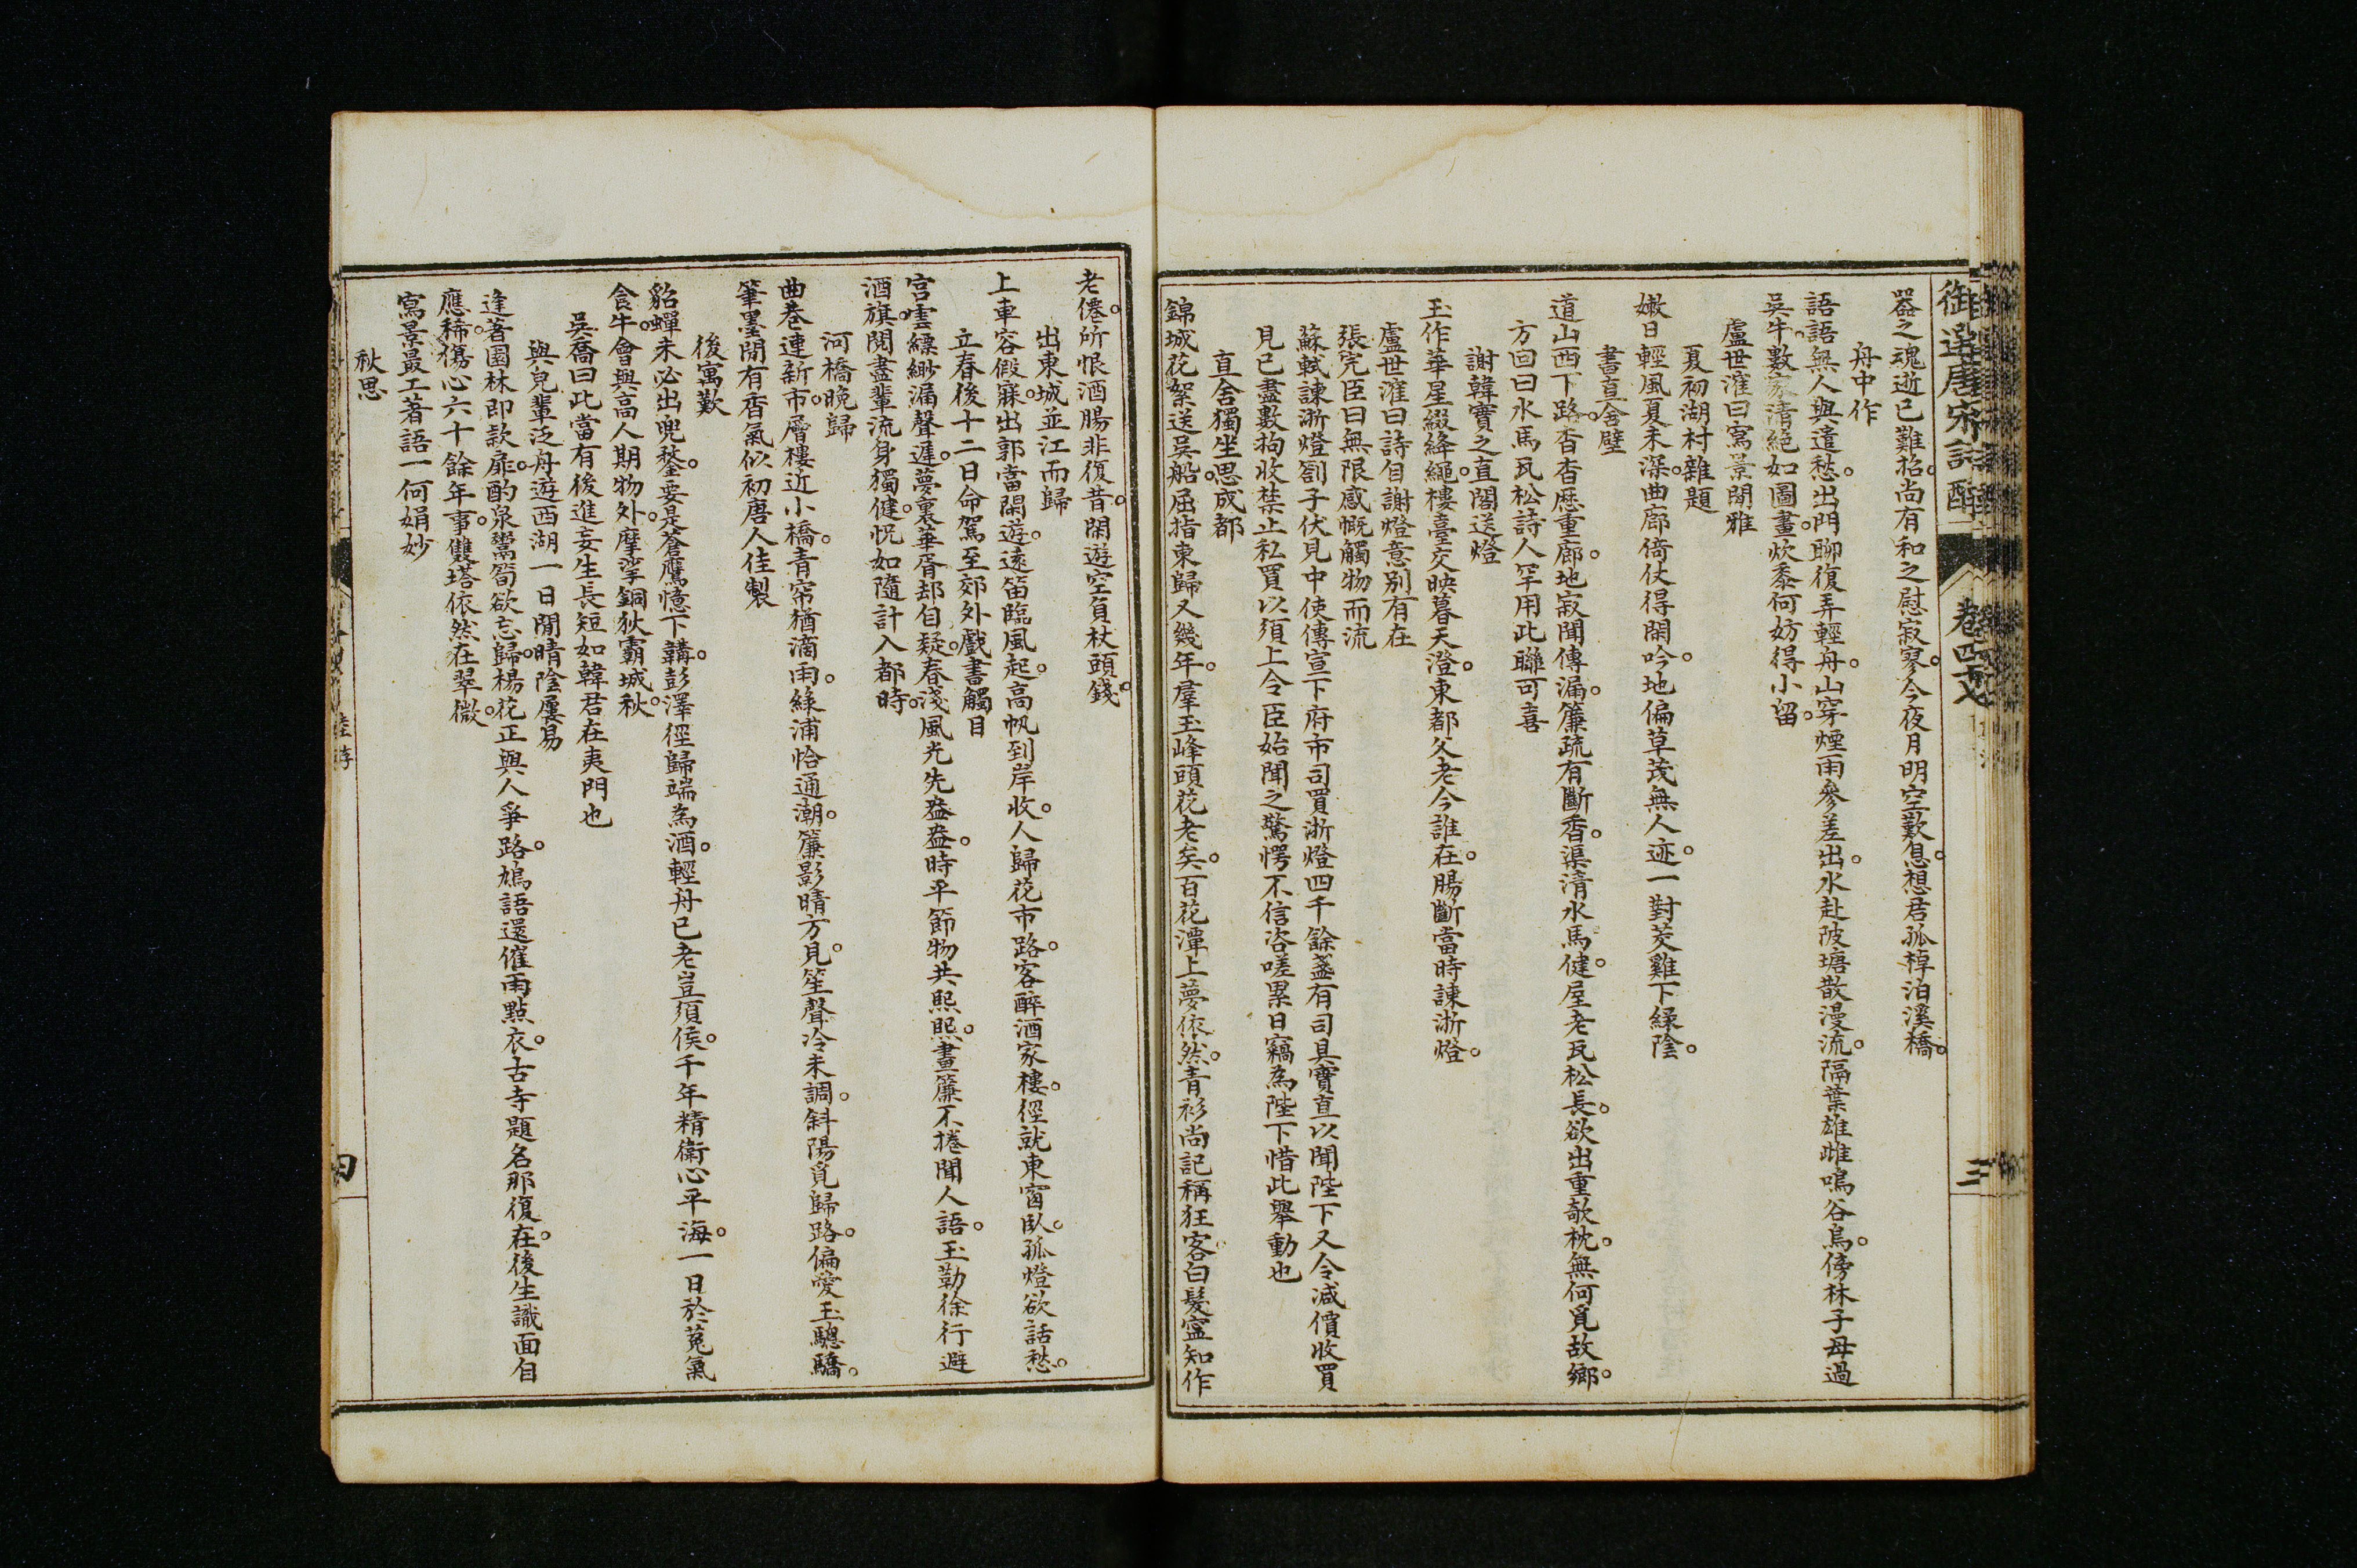 御選唐宋詩醇
卷四十七
三
器之魂逝已難招。尚有和之慰寂寥。今夜月明空歎息。想君孤棹泊溪橋。
舟中作
語語無人與遣愁。出門聊復弄輕舟。山穿煙雨參差出。水赴陂塘散漫流。隔葉雄雌鳴谷鳥。傍林子母過
吳牛。數家清絕如圖畫。炊黍何妨得小留。
盧世㴶曰寫景閒雅
夏初湖村雜題
嫩日輕風夏未深。曲廊倚仗得閒吟。地偏草茂無人迹。一對茭雞下綠陰。
書直舍壁
道山西下路。杳杳歷重廊。地寂聞傳漏。簾疏有斷香。渠清水馬健。屋老瓦松長。欲出重欹枕。無何覓故鄉。
方回曰水馬瓦松詩人罕用此聯可喜
謝韓實之直閣送燈
玉作華星綴絳繩。樓臺交映暮天澄。東都父老今誰在。腸斷當時諫浙燈。
盧世㴶曰詩自謝燈意别有在
張完臣曰無限感慨觸物而流
蘇軾諫浙燈劄子伏見中使傳宣下府市司買浙燈四千餘盞有司具實直以聞陛下又令減價收買
見已盡數拘收禁止私買以須上令臣始聞之驚愕不信咨嗟累日竊為陛下惜此舉動也
直舍獨坐思成都
錦城花絮送吳船。屈指東歸又幾年。羣玉峰頭花老矣。百花潭上夢依然。青衫尚記稱狂客。白髮寧知作
老僊。所恨酒腸非復昔。閒遊空負杖頭錢。
出東城並江而歸
上車容假寐。出郭當閒遊。遠笛臨風起。高帆到岸收。人歸花市路。客醉酒家樓。徑就東窗臥。孤燈欲話愁。
立春後十二日命駕至郊外戲書觸目
宮雲縹緲漏聲遲。夢裏華胥却自疑。春淺風光先盎盎。時平節物共熙熙。畫簾不捲聞人語。玉勒徐行避
酒旗。閱盡輩流身獨健。怳如隨計入都時。
河橋晚歸
曲巷連新市。層樓近小橋。青帘猶滴雨。綠浦恰通潮。簾影晴方見。笙聲冷未調。斜陽覓歸路。偏愛玉驄驕。
筆墨閒有香氣似初唐人佳製
後寓歎
貂蟬未必出兜鍪。要是蒼鷹憶下韝。彭澤徑歸端為酒。輕舟已老豈須侯。千年精衞心平海。一日於菟氣
食牛。會與高人期物外。摩挲銅狄霸城秋。
吳喬曰此當有後進妄生長短如韓君在夷門也
與兒輩泛舟遊西湖一日閒晴陰屢易
逢著園林即款扉。酌泉鬻筍欲忘歸。楊花正與人爭路。鳩語還催雨點衣。古寺題名那復在。後生識面自
應稀。傷心六十餘年事。雙塔依然在翠微。
寫景最工著語一何娟妙
秋思
陸游
四